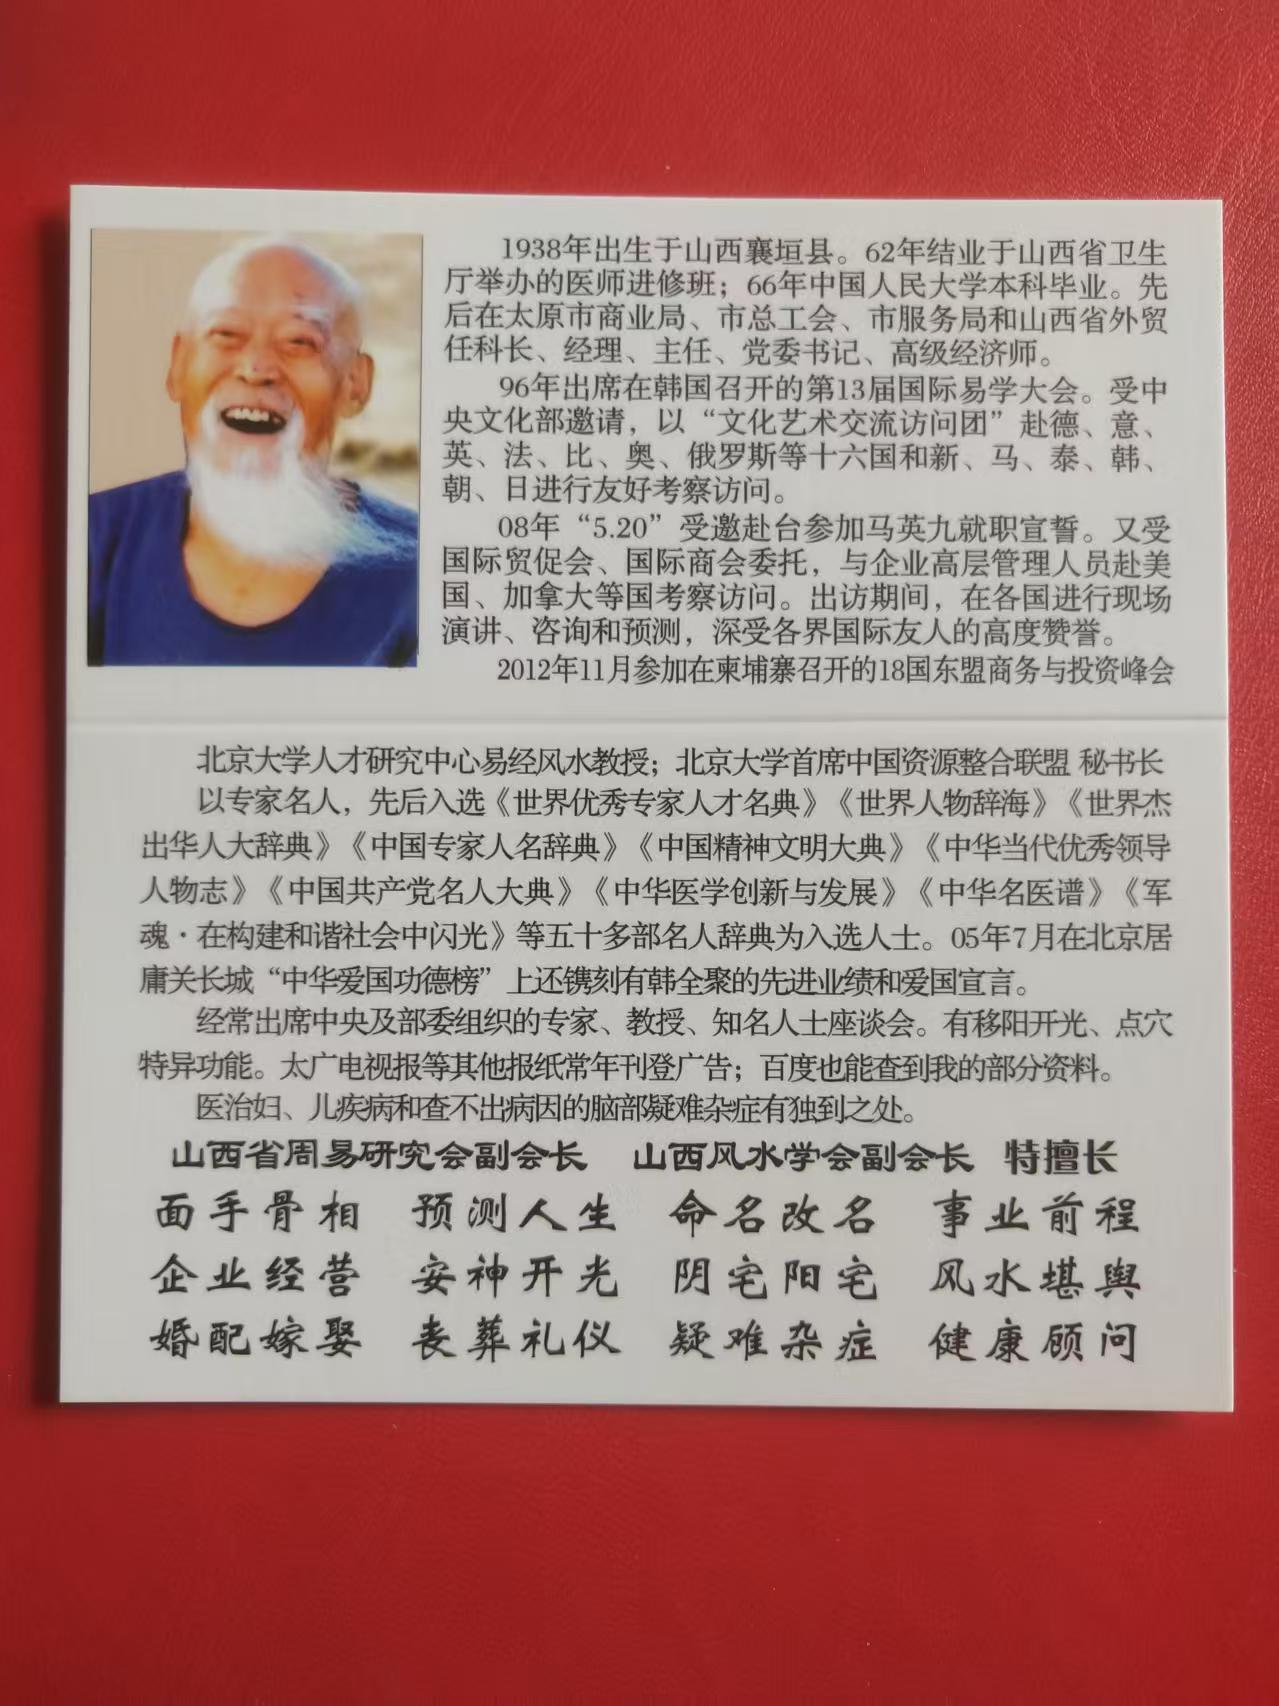 1938年出生于山西襄垣县。62年结业于山西省卫生
厅举办的医师进修班；66年中国人民大学本科毕业。先
后在太原市商业局、市总工会、市服务局和山西省外贸
任科长、经理、主任、党委书记、高级经济师。
96年出席在韩国召开的第13届国际易学大会。受中
央文化部邀请，以“文化艺术交流访问团”赴德、意、
英、法、比、奥、俄罗斯等十六国和新、马、泰、韩、
朝、日进行友好考察访问。
08年“5.20”受邀赴台参加马英九就职宣誓。又受
国际贸促会、国际商会委托，与企业高层管理人员赴美
国、加拿大等国考察访问。出访期间，在各国进行现场
演讲、咨询和预测，深受各界国际友人的高度赞誉。
2012年11月参加在柬埔寨召开的18国东盟商务与投资峰会
北京大学人才研究中心易经风水教授；北京大学首席中国资源整合联盟 秘书长
以专家名人，先后入选《世界优秀专家人才名典》《世界人物辞海》《世界杰
出华人大辞典》《中国专家人名辞典》《中国精神文明大典》《中华当代优秀领导
人物志》《中国共产党名人大典》《中华医学创新与发展》《中华名医谱》《军
魂·在构建和谐社会中闪光》等五十多部名人辞典为入选人士。05年7月在北京居
庸关长城“中华爱国功德榜”上还镌刻有韩全聚的先进业绩和爱国宣言。
经常出席中央及部委组织的专家、教授、知名人士座谈会。有移阳开光、点穴
特异功能。太广电视报等其他报纸常年刊登广告；百度也能查到我的部分资料。
医治妇、儿疾病和查不出病因的脑部疑难杂症有独到之处。
山西省周易研究会副会长 山西风水学会副会长 特擅长
面手骨相 预测人生 命名改名 事业前程
企业经营 安神开光 阴宅阳宅 风水堪舆
婚配嫁娶 丧葬礼仪 疑难杂症 健康顾问